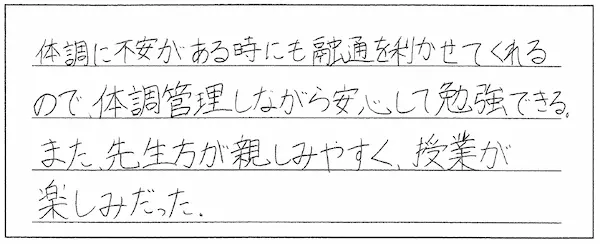 体調に不安がある時にも融通を利かせてくれる
ので、体調管理しながら安心して勉強できる。
また、先生方が親しみやすく、授業が
楽しみだった。